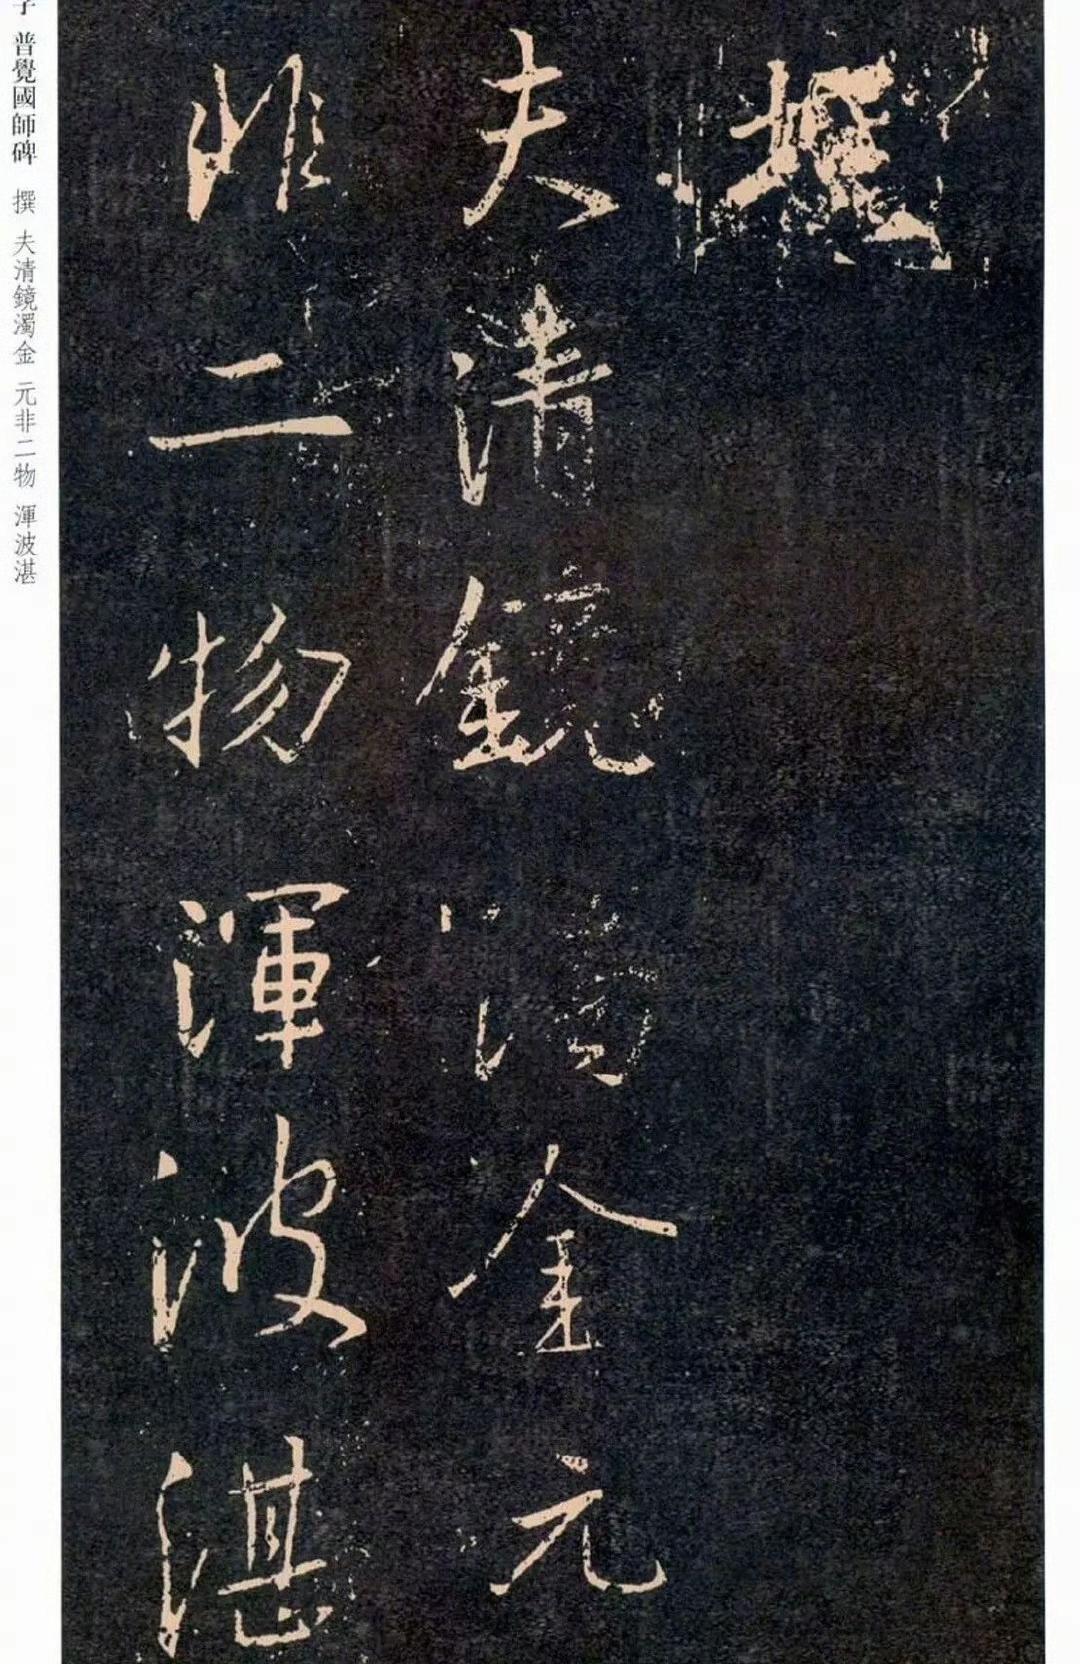 撰
夫清鏡濁金元
非二物渾波湛
普覺國師碑 撰 夫清鏡濁金 元非二物 渾波湛